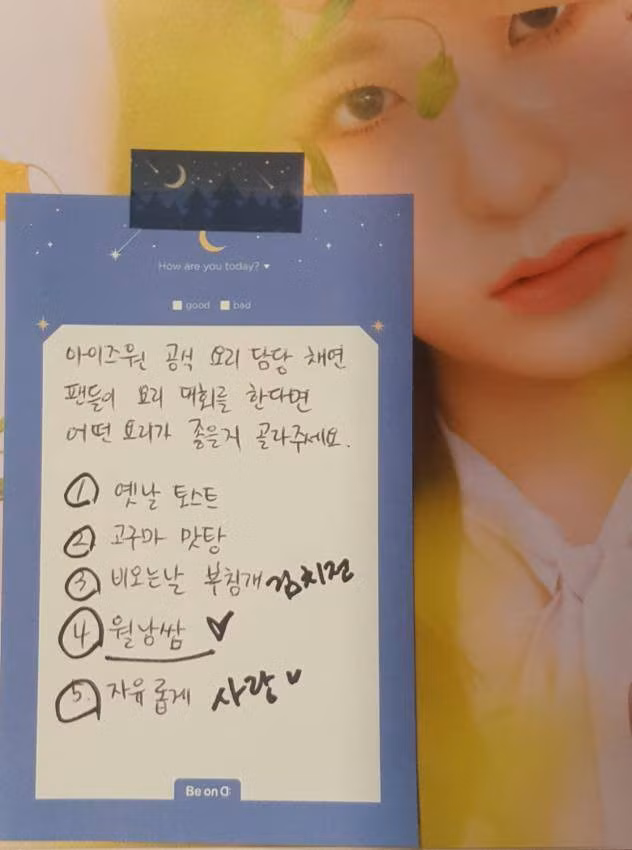 How are you today? ▾
good bad
아이즈원 공식 요리 담당 채연
팬들이 요리 대회를 한다면
어떤 요리가 좋을지 골라주세요.
① 옛날 토스트
② 고구마 맛탕
③ 비오는날 부침개 김치전
④ 월남쌈 ♥
⑤ 자유롭게 사랑♥
Be on D: